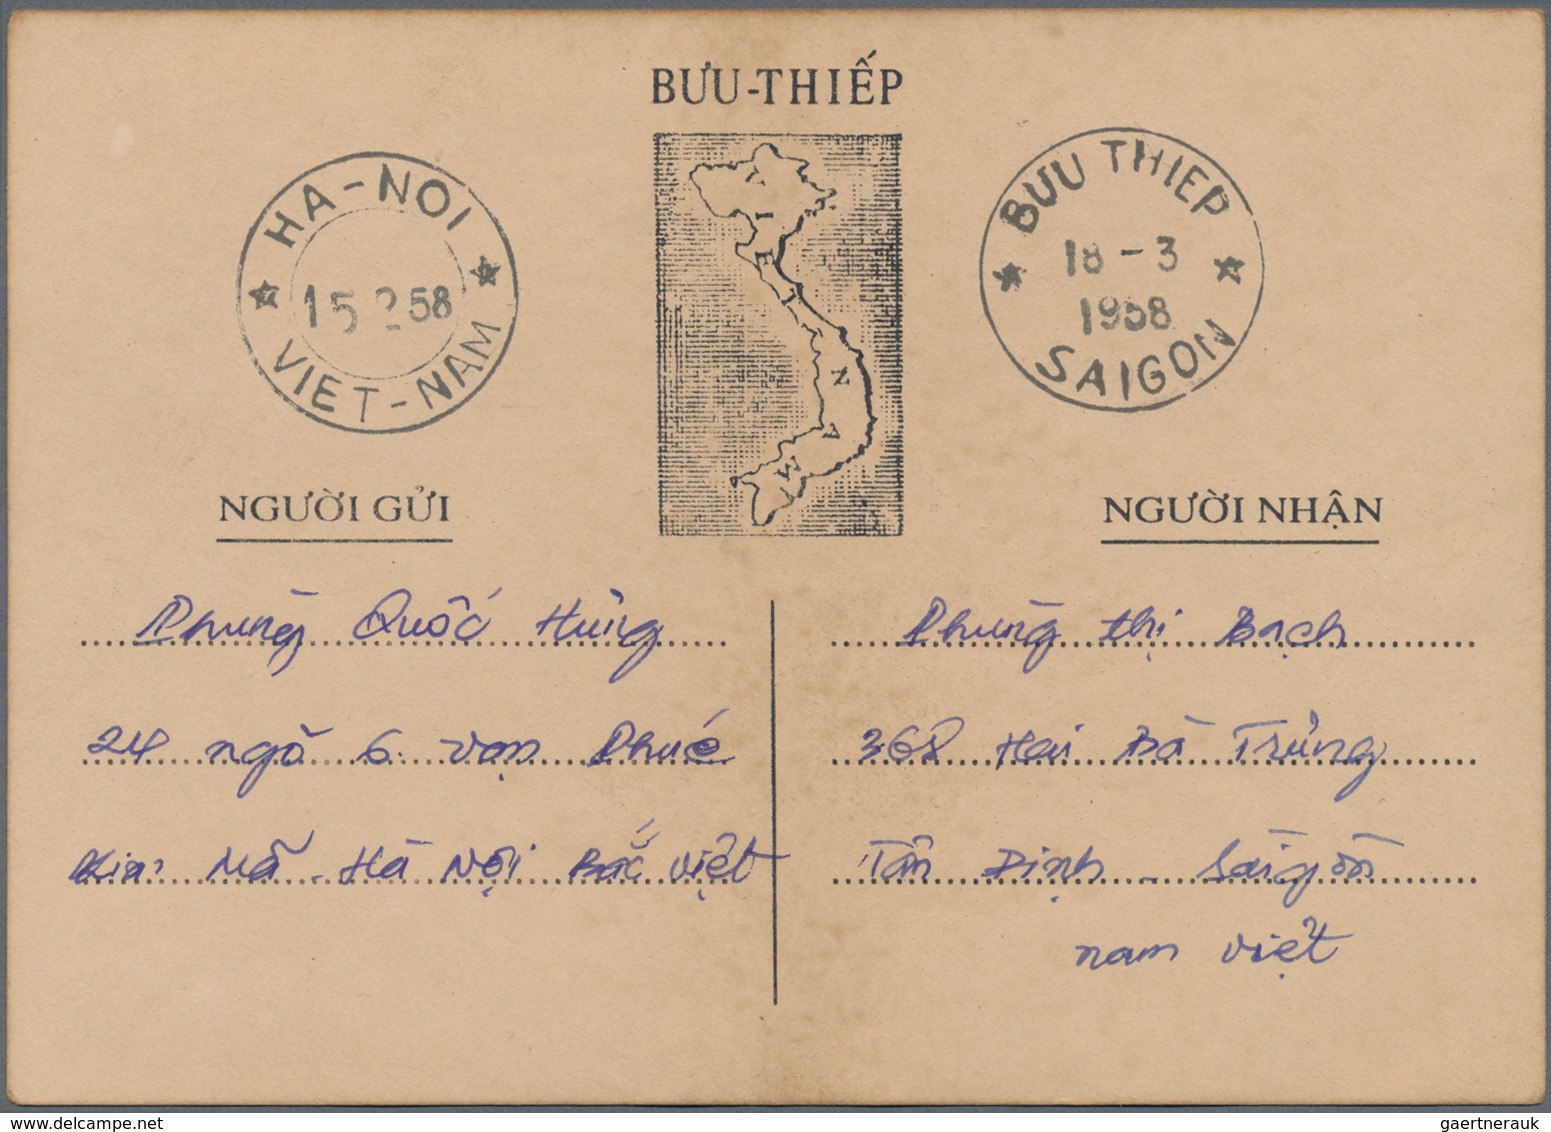 BƯU-THIẾP
HA-NOI
15 2 58
VIET-NAM
VIETNAM
BUU THIEP
18-3
1958
SAIGON
NGƯỜI GỬI
Phùng Quốc Hùng
24 ngõ 6. vạn Phúc
Kim Mã - Hà Nội Bắc Việt
NGƯỜI NHẬN
Phùng thị Bạch
368 Hai Bà Trưng
Tân Định - Saigòn
nam việt
gaertnerauk